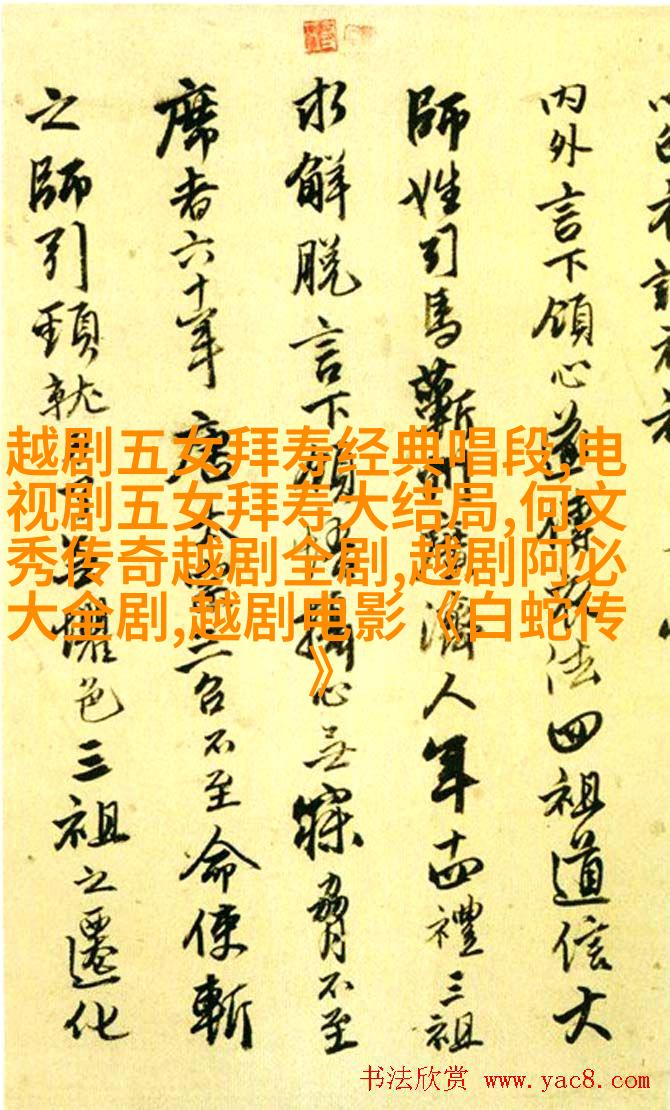 内外言下領心遂傳衣法四祖道信大
師姓司馬蘄州廣濟人年十四禮三祖
求解脱言下頓悟攝心無寐脅不至
席者六十年唐太宗三召不至命使斬
之師引頸就刃無懼色三祖之遷化
越剧五女拜寿经典唱段,电
视剧五女拜寿大结局,何文
秀传奇越剧全剧,越剧阿必
大全剧,越剧电影《白蛇传
》
书法欣赏 www.yac8.com